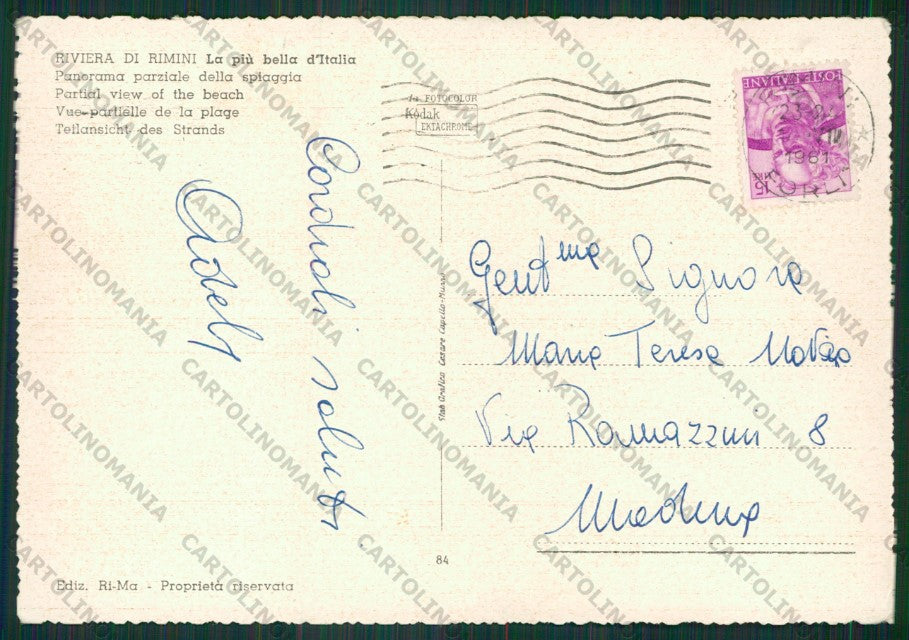 RIVIERA DI RIMINI La più bella d'Italia
Panorama parziale della spiaggia
Partial view of the beach
Vue partielle de la plage
Teilansicht des Strands
da FOTOCOLOR
Kodak
EKTACHROME
POSTE ITALIANE
LIRE 15
1961
FORLI
Cordiali saluti
Gent.ma Signora
Maria Teresa
Via Ramazzini 8
Modena
Stab. Grafico Cesare Capello-Milano
84
Ediz. Ri-Ma - Proprietà riservata
CARTOLINOMANIA